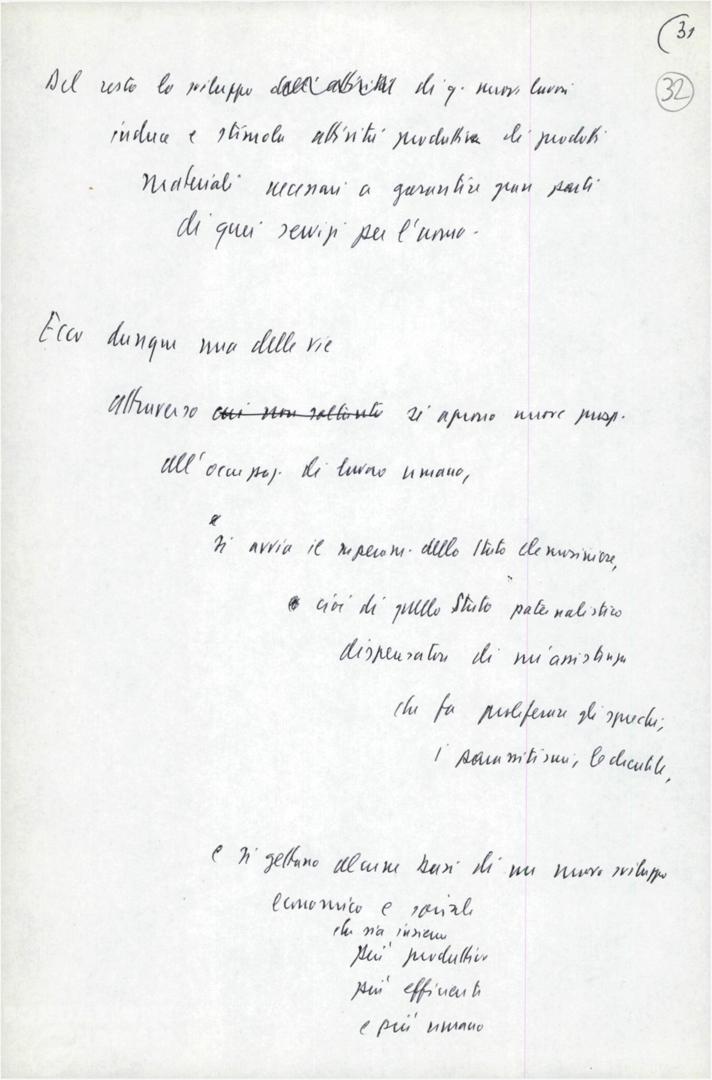 (31
32
Del resto lo sviluppo dell'attività di q. nuovi lavori
induce e stimola attività produttiva di prodotti
materiali necessari a garantire gran parti
di quei servizi per l'uomo.
Ecco dunque una delle vie
attraverso cui non soltanto si aprono nuove prosp.
all'occupaz. di lavoro umano,
si avvia il superam. dello Stato elemosiniere,
cioè di quello Stato paternalistico
dispensatore di un'assistenza
che fa proliferare gli sprechi,
i parassitismi, le clientele,
e si gettano alcune basi di un nuovo sviluppo
economico e sociale
che sia insieme
più produttivo
più efficiente
e più umano